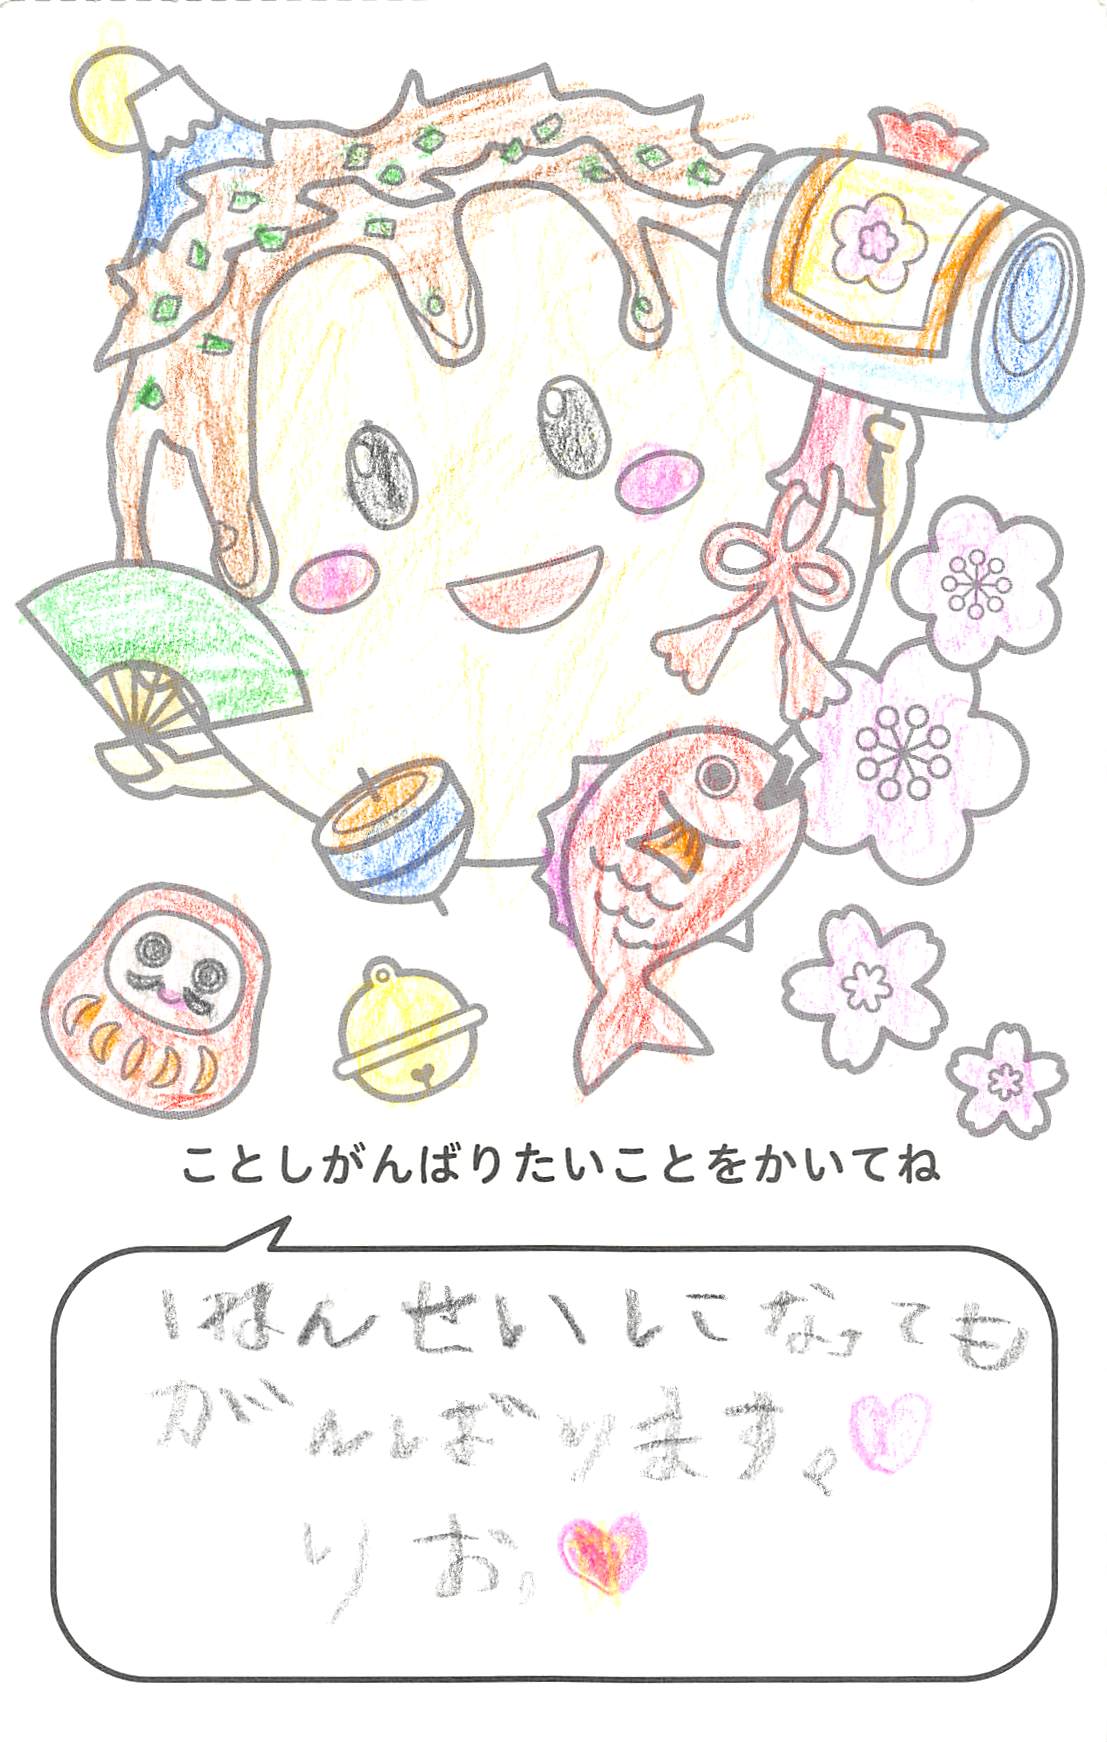 ことしがんばりたいことをかいてね
1ねんせいになっても
がんばります。
りお。